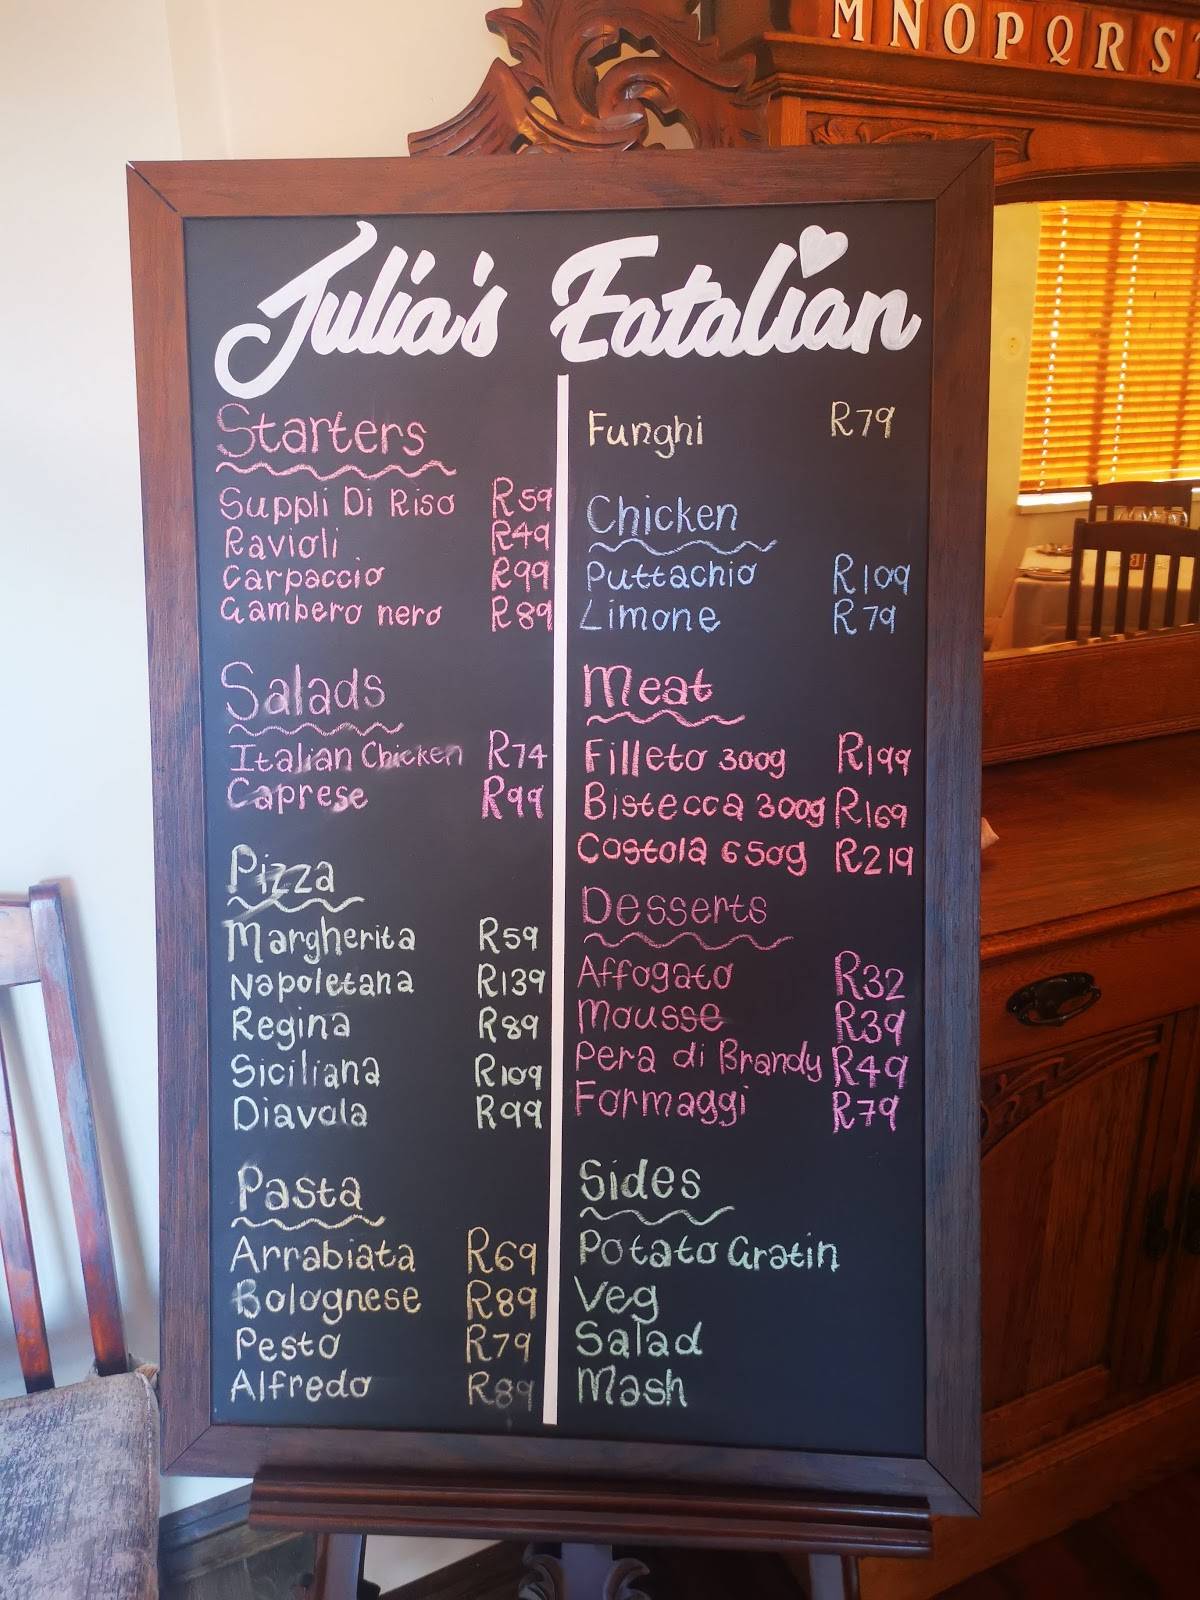 MNOPQRS
Julia's Eatalian
Starters
Suppli Di Riso R59
Ravioli R49
Carpaccio R99
Gambero nero R89
Salads
Italian Chicken R74
Caprese R99
Pizza
Margherita R59
Napoletana R139
Regina R89
Siciliana R109
Diavola R99
Pasta
Arrabiata R69
Bolognese R89
Pesto R79
Alfredo R89
Funghi R79
Chicken
Puttachio R109
Limone R79
Meat
Filleto 300g R199
Bistecca 300g R169
Costola 650g R219
Desserts
Affogato R32
Mousse R39
Pera di Brandy R49
Formaggi R79
Sides
Potato Gratin
Veg
Salad
Mash